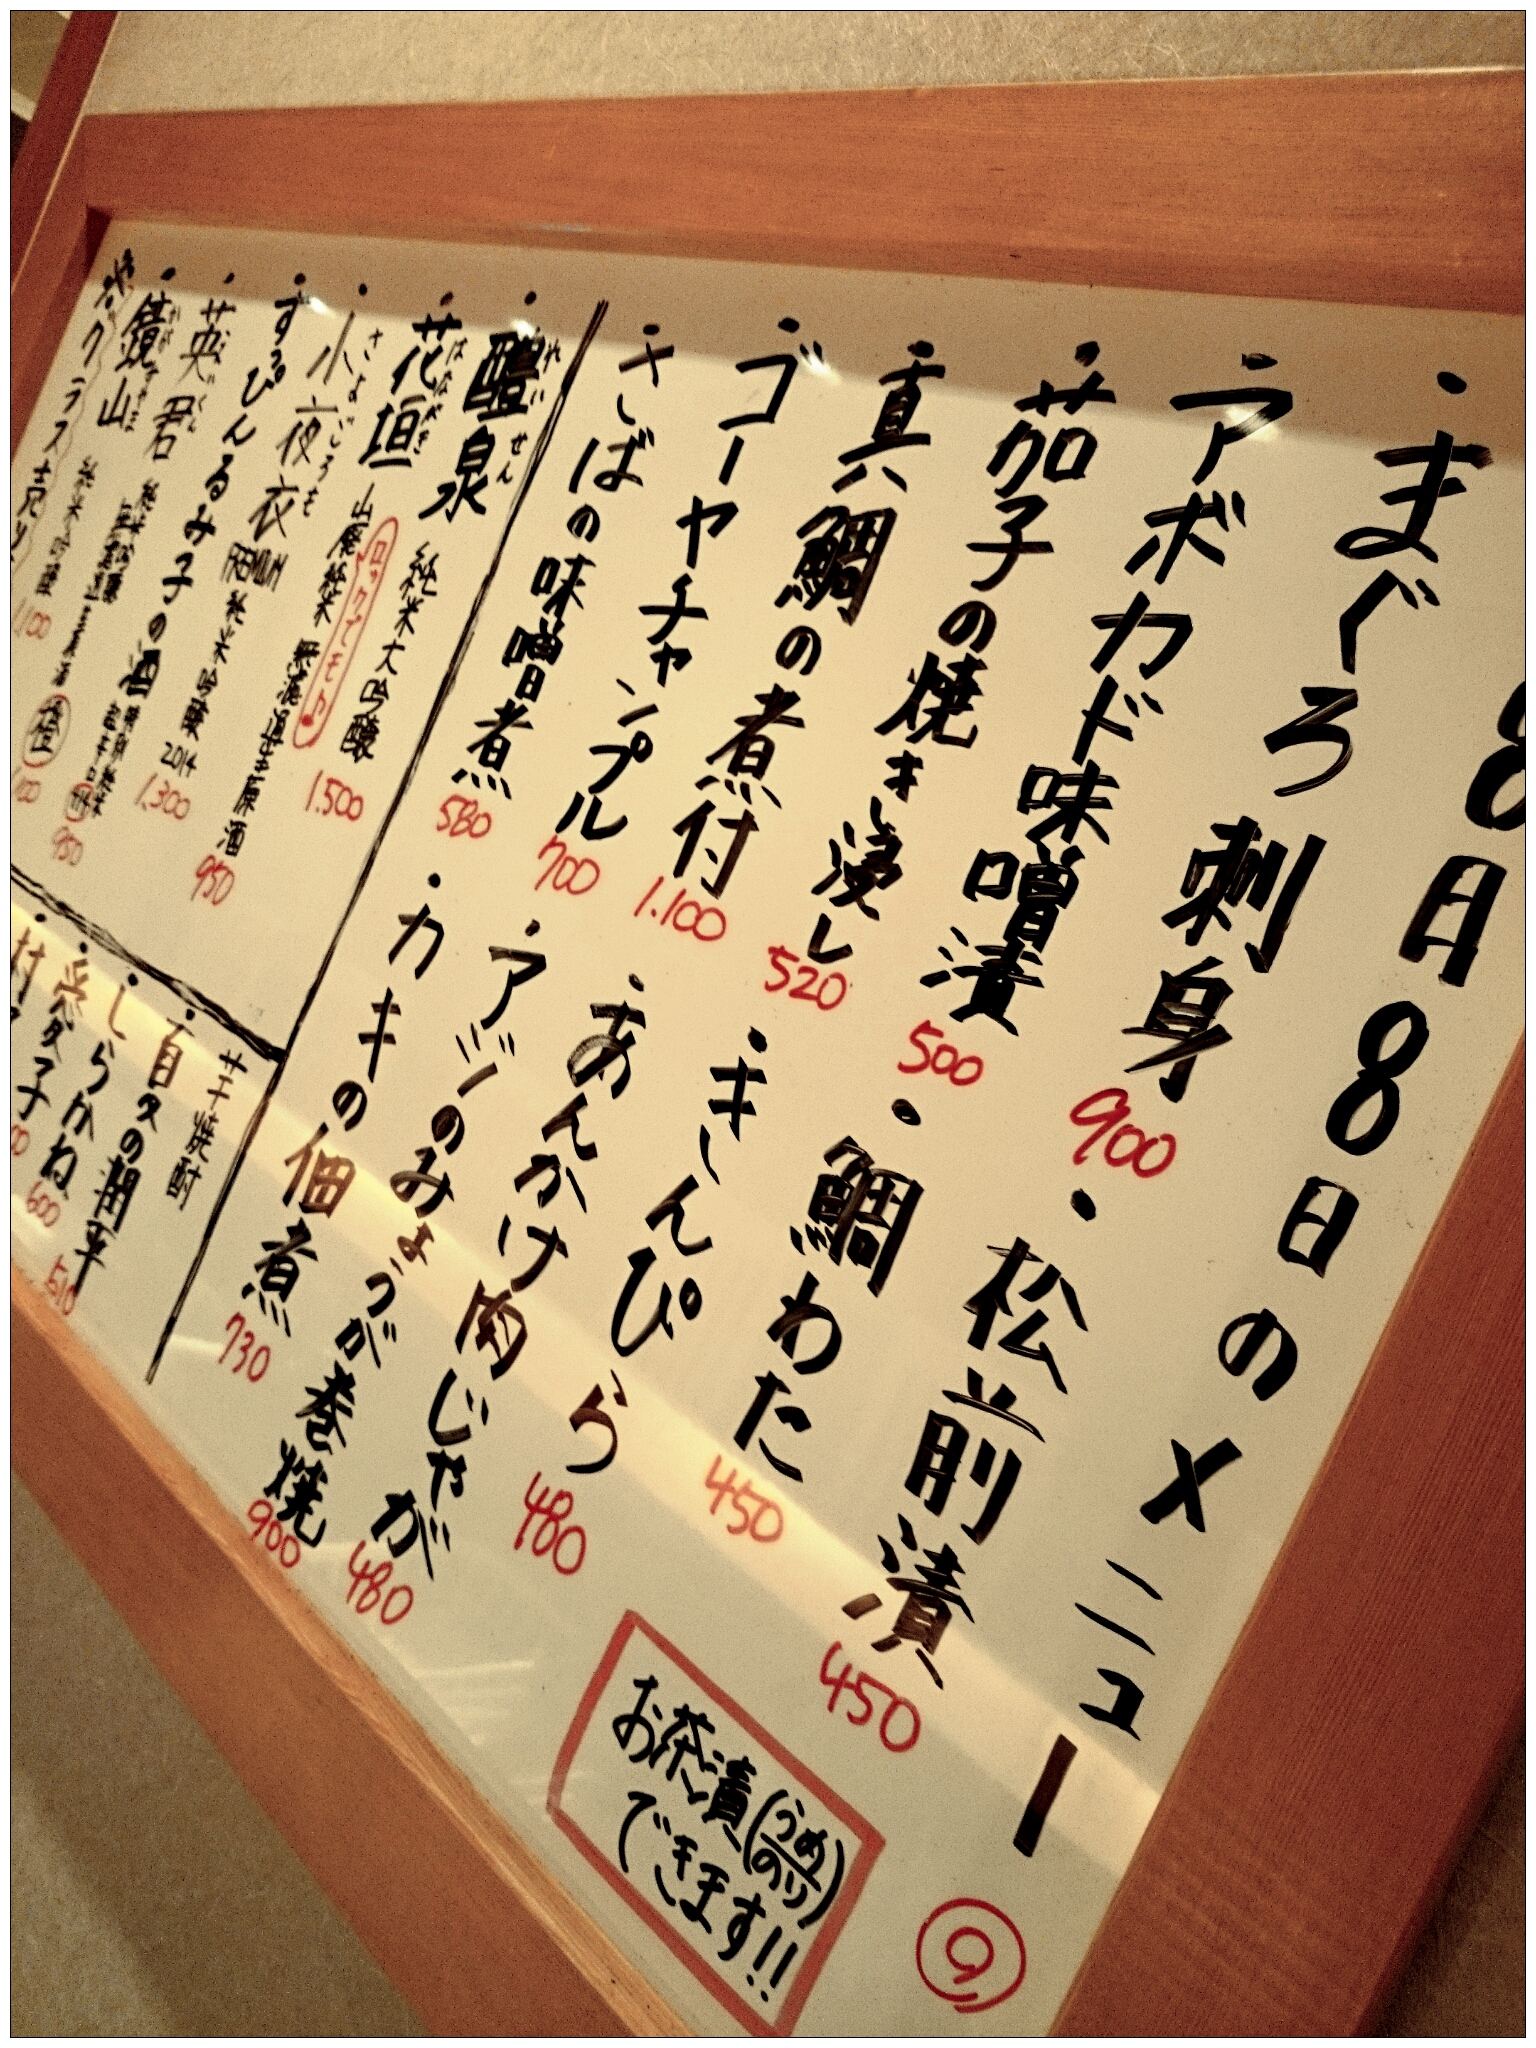 8月8日のメニュー
・まぐろ刺身 900
・松前漬 450
・アボカド味噌漬 500
・鯛わた 450
・茄子の焼き浸し 520
・きんぴら 480
・真鯛の煮付 1.100
・あんかけ肉じゃが 480
・ゴーヤチャンプル 700
・アジのみょうが巻焼 900
・さばの味噌煮 580
・カキの佃煮 730
お茶漬(うめ のり)
できます!!
9
・醴泉 れいせん 純米大吟醸 1.500
・花垣 はながき 山廃純米 無濾過生原酒 950
ロックでもり
・小夜衣 さよごろも 純米吟醸
・すっぴんるみ子の酒
1.300
・英君 えいくん 950
・鏡山 かがみやま 純米吟醸 1,100
※グラス売り
芋焼酎
・百々の
510
・しらかね 600